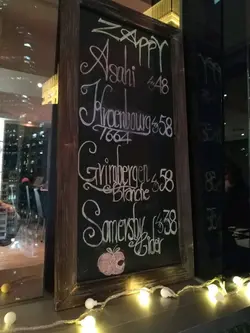 ZAPPY
Asahi $48
Kroenbourg $58
1664
Grinbergen $58
Blanche
Somersby $38
Cider